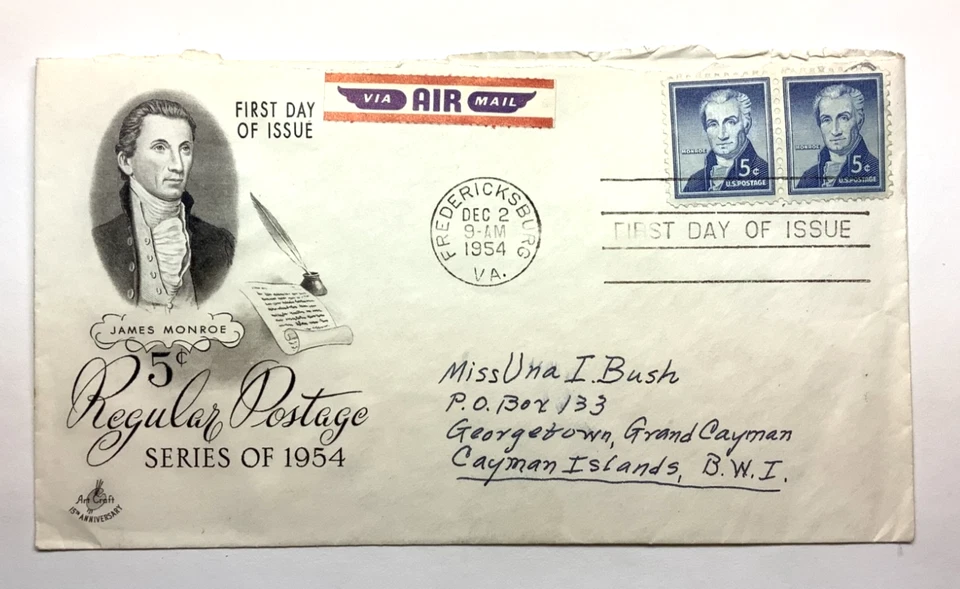 FIRST DAY
OF ISSUE
VIA AIR MAIL
MONROE
5¢
U.S. POSTAGE
MONROE
5¢
U.S. POSTAGE
FREDERICKSBURG
DEC 2
9-AM
1954
VA.
FIRST DAY OF ISSUE
JAMES MONROE
5¢
Regular Postage
SERIES OF 1954
Art Craft
15TH ANNIVERSARY
Miss Una I. Bush
P.O. Box 133
Georgetown, Grand Cayman
Cayman Islands, B.W.I.